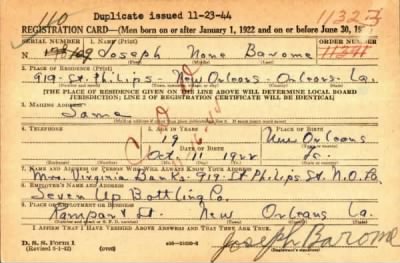 110
Duplicate issued 11-23-44
11323
REGISTRATION CARD—(Men born on or after January 1, 1922 and on or before June 30, 19
SERIAL NUMBER
1. NAME (Print)
ORDER NUMBER
N
109
Joseph None Barome
11391
(First) (Middle) (Last)
2. PLACE OF RESIDENCE (Print)
919-St. Philips- New Orleans- Orleans- La.
[THE PLACE OF RESIDENCE GIVEN ON THE LINE ABOVE WILL DETERMINE LOCAL BOARD
JURISDICTION; LINE 2 OF REGISTRATION CERTIFICATE WILL BE IDENTICAL]
3. MAILING ADDRESS
Same
4. TELEPHONE
5. AGE IN YEARS
6. PLACE OF BIRTH
19
New Orleans
DATE OF BIRTH
Oct. 11 1922
La.
7. NAME AND ADDRESS OF PERSON WHO WILL ALWAYS KNOW YOUR ADDRESS
Mrs Virginia Banks-919-St Philips St. N.O. La
8. EMPLOYER'S NAME AND ADDRESS
Seven Up Bottling Co.
9. PLACE OF EMPLOYMENT OR BUSINESS
Rampart St. New Orleans La.
I AFFIRM THAT I HAVE VERIFIED ABOVE ANSWERS AND THAT THEY ARE TRUE.
D. S. S. Form 1
(Revised 6-1-42)
Joseph Barome